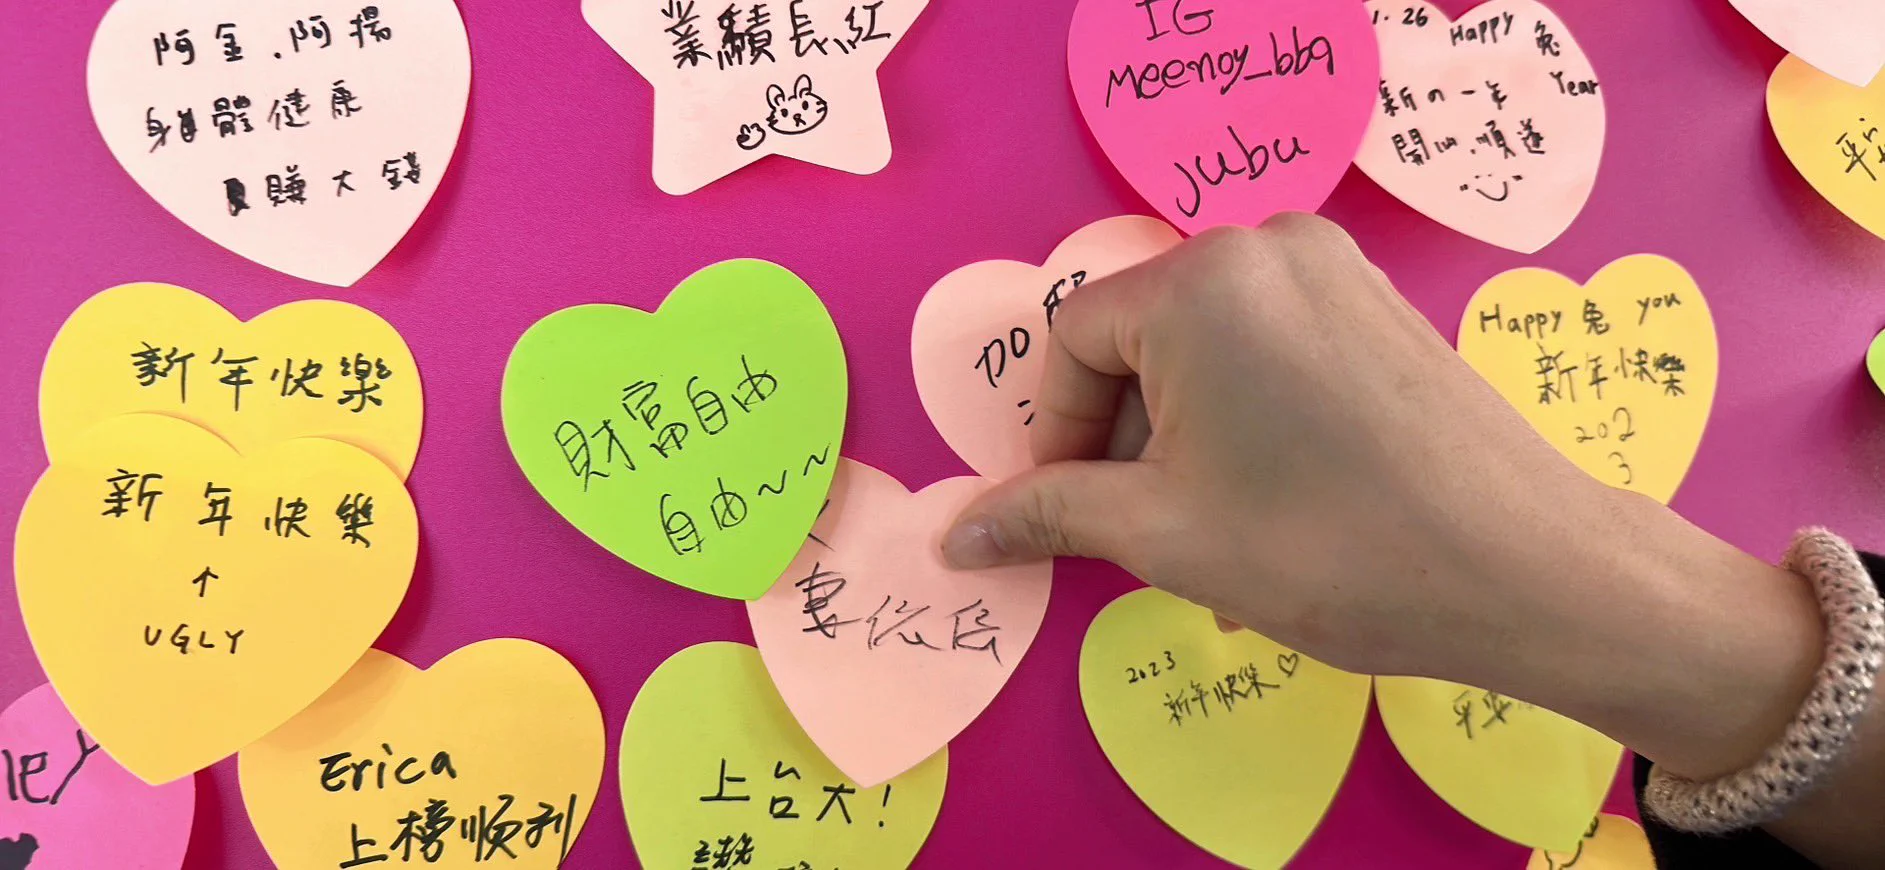 阿金.阿揚
身體健康
賺大錢
業績長紅
IG
meenoy_bbq
jubu
1.26 Happy 兔
Year
新の一年
開心.順遂
平
新年快樂
新年快樂
↑
UGLY
財富自由
自由~~
加
Happy 兔 you
新年快樂
202
3
2023
新年快樂♡
平安
Erica
上榜順利
上台大!